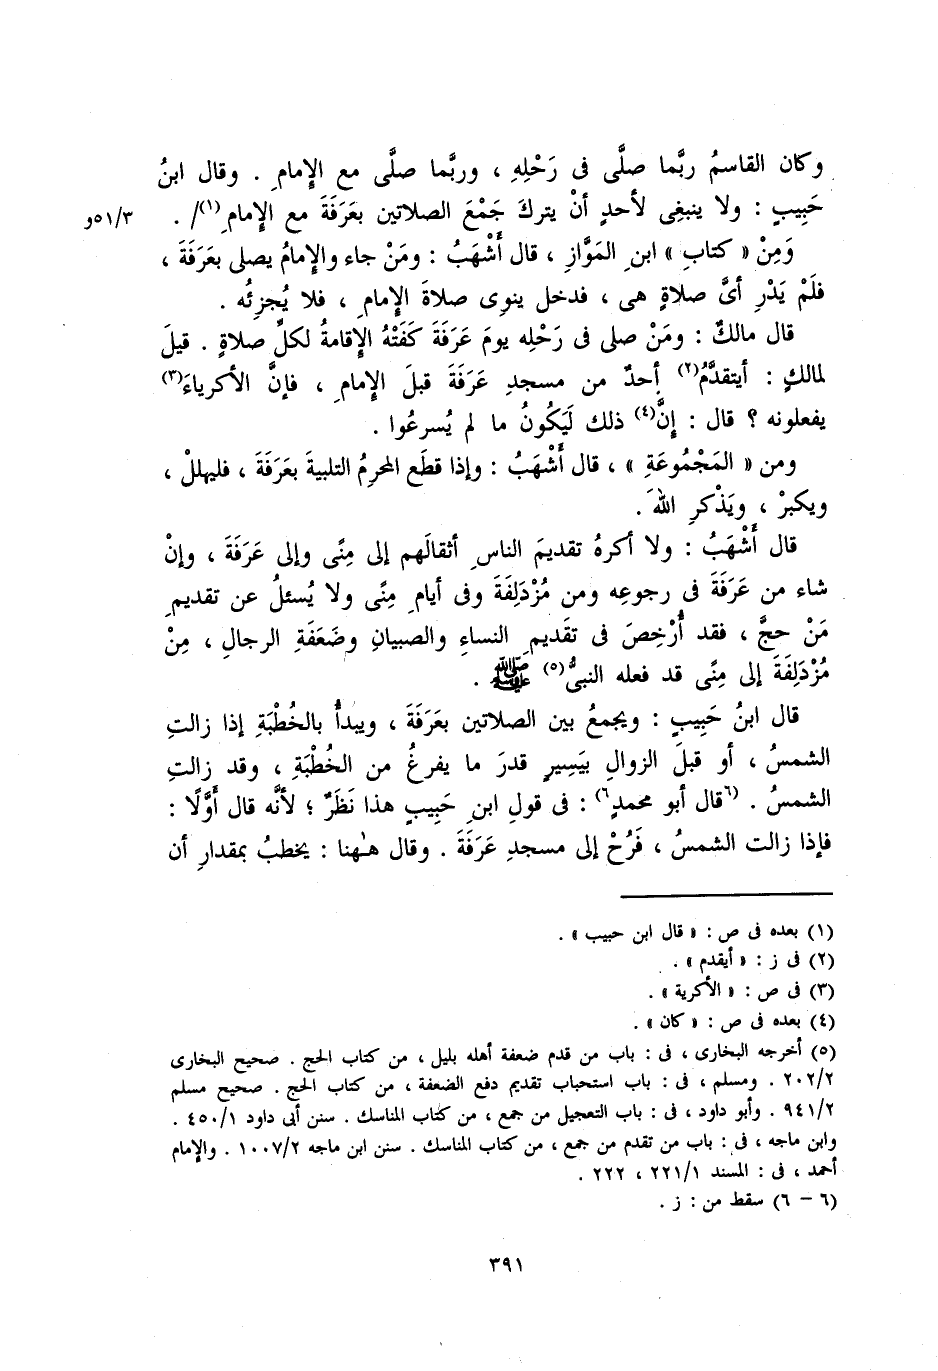 وكان القاسمُ ربَّما صلَّى فى رَحْلِهِ ، وربَّما صلَّى مع الإِمامِ . وقال ابنُ
حَبِيبٍ : ولا ينبغِى لأحدٍ أنْ يتركَ جَمْعَ الصلاتين بعَرَفَةَ مع الإِمامِ(١)/ .
٥١/٣و
وَمِنْ « كتابِ » ابنِ المَوَّازِ ، قال أَشْهَبُ : ومَنْ جاء والإِمامُ يصلى بعَرَفَةَ ،
فلَمْ يَدْرِ أىَّ صلاةٍ هى ، فدخل ينوِى صلاةَ الإِمامِ ، فلا يُجزِئُه .
قال مالكٌ : ومَنْ صلى فى رَحْلِه يومَ عَرَفَةَ كَفَتْهُ الإِقامةُ لكلِّ صلاةٍ . قيلَ
لمالكٍ : أيتقدَّمُ(٢) أحدٌ من مسجدِ عَرَفَةَ قبلَ الإِمامِ ، فإنَّ الأكرياءَ(٣)
يفعلونه ؟ قال : إنَّ(٤) ذلك لَيَكُونُ ما لم يُسرعُوا .
ومن « المَجْمُوعَةِ » ، قال أَشْهَبُ : وإذا قطَع المحرِمُ التلبيةَ بعَرَفَةَ ، فليهللْ ،
ويكبرْ ، ويَذْكرِ اللهَ .
قال أَشْهَبُ : ولا أكرهُ تقديمَ الناسِ أثقالَهم إلى مِنًى وإلى عَرَفَةَ ، وإنْ
شاء من عَرَفَةَ فى رجوعِه ومن مُزْدَلِفَةَ وفى أيامِ مِنًى ولا يُسئلُ عن تقديمِ
مَنْ حجَّ ، فقد أُرْخِصَ فى تقَديمِ النساءِ والصبيانِ وضَعَفَةِ الرجالِ ، مِنْ
مُزْدَلِفَةَ إلى مِنًى قد فعله النبىُّ(٥) ﷺ .
قال ابنُ حَبِيبٍ : ويجمعُ بين الصلاتين بعَرَفَةَ ، ويبدأُ بالخُطْبَةِ إذا زالتِ
الشمسُ ، أو قبلَ الزوالِ بيَسِيرٍ قدرَ ما يفرغُ من الخُطْبَةِ ، وقد زالتِ
الشمسُ . (٦قال أبو محمدٍ٦) : فى قولِ ابنِ حَبِيبٍ هذا نَظَرٌ ؛ لأنَّه قال أَوَّلًا :
فإذا زالت الشمسُ ، فَرُحْ إلى مسجدِ عَرَفَةَ . وقال هـٰهنا : يخطبُ بمقدارِ أن
(١) بعده فى ص : « قال ابن حبيب » .
(٢) فى ز : « أيقدم » .
(٣) فى ص : « الأكرية » .
(٤) بعده فى ص : « كان » .
(٥) أخرجه البخارى ، فى : باب من قدم ضعفة أهله بليل ، من كتاب الحج . صحيح البخارى
٢٠٢/٢ . ومسلم ، فى : باب استحباب تقديم دفع الضعفة ، من كتاب الحج . صحيح مسلم
٩٤١/٢ . وأبو داود ، فى : باب التعجيل من جمع ، من كتاب المناسك . سنن أبى داود ٤٥٠/١ .
وابن ماجه ، فى : باب من تقدم من جمع ، من كتاب المناسك . سنن ابن ماجه ١٠٠٧/٢ . والإمام
أحمد ، فى : المسند ٢٢١/١ ، ٢٢٢ .
(٦ - ٦) سقط من : ز .
٣٩١